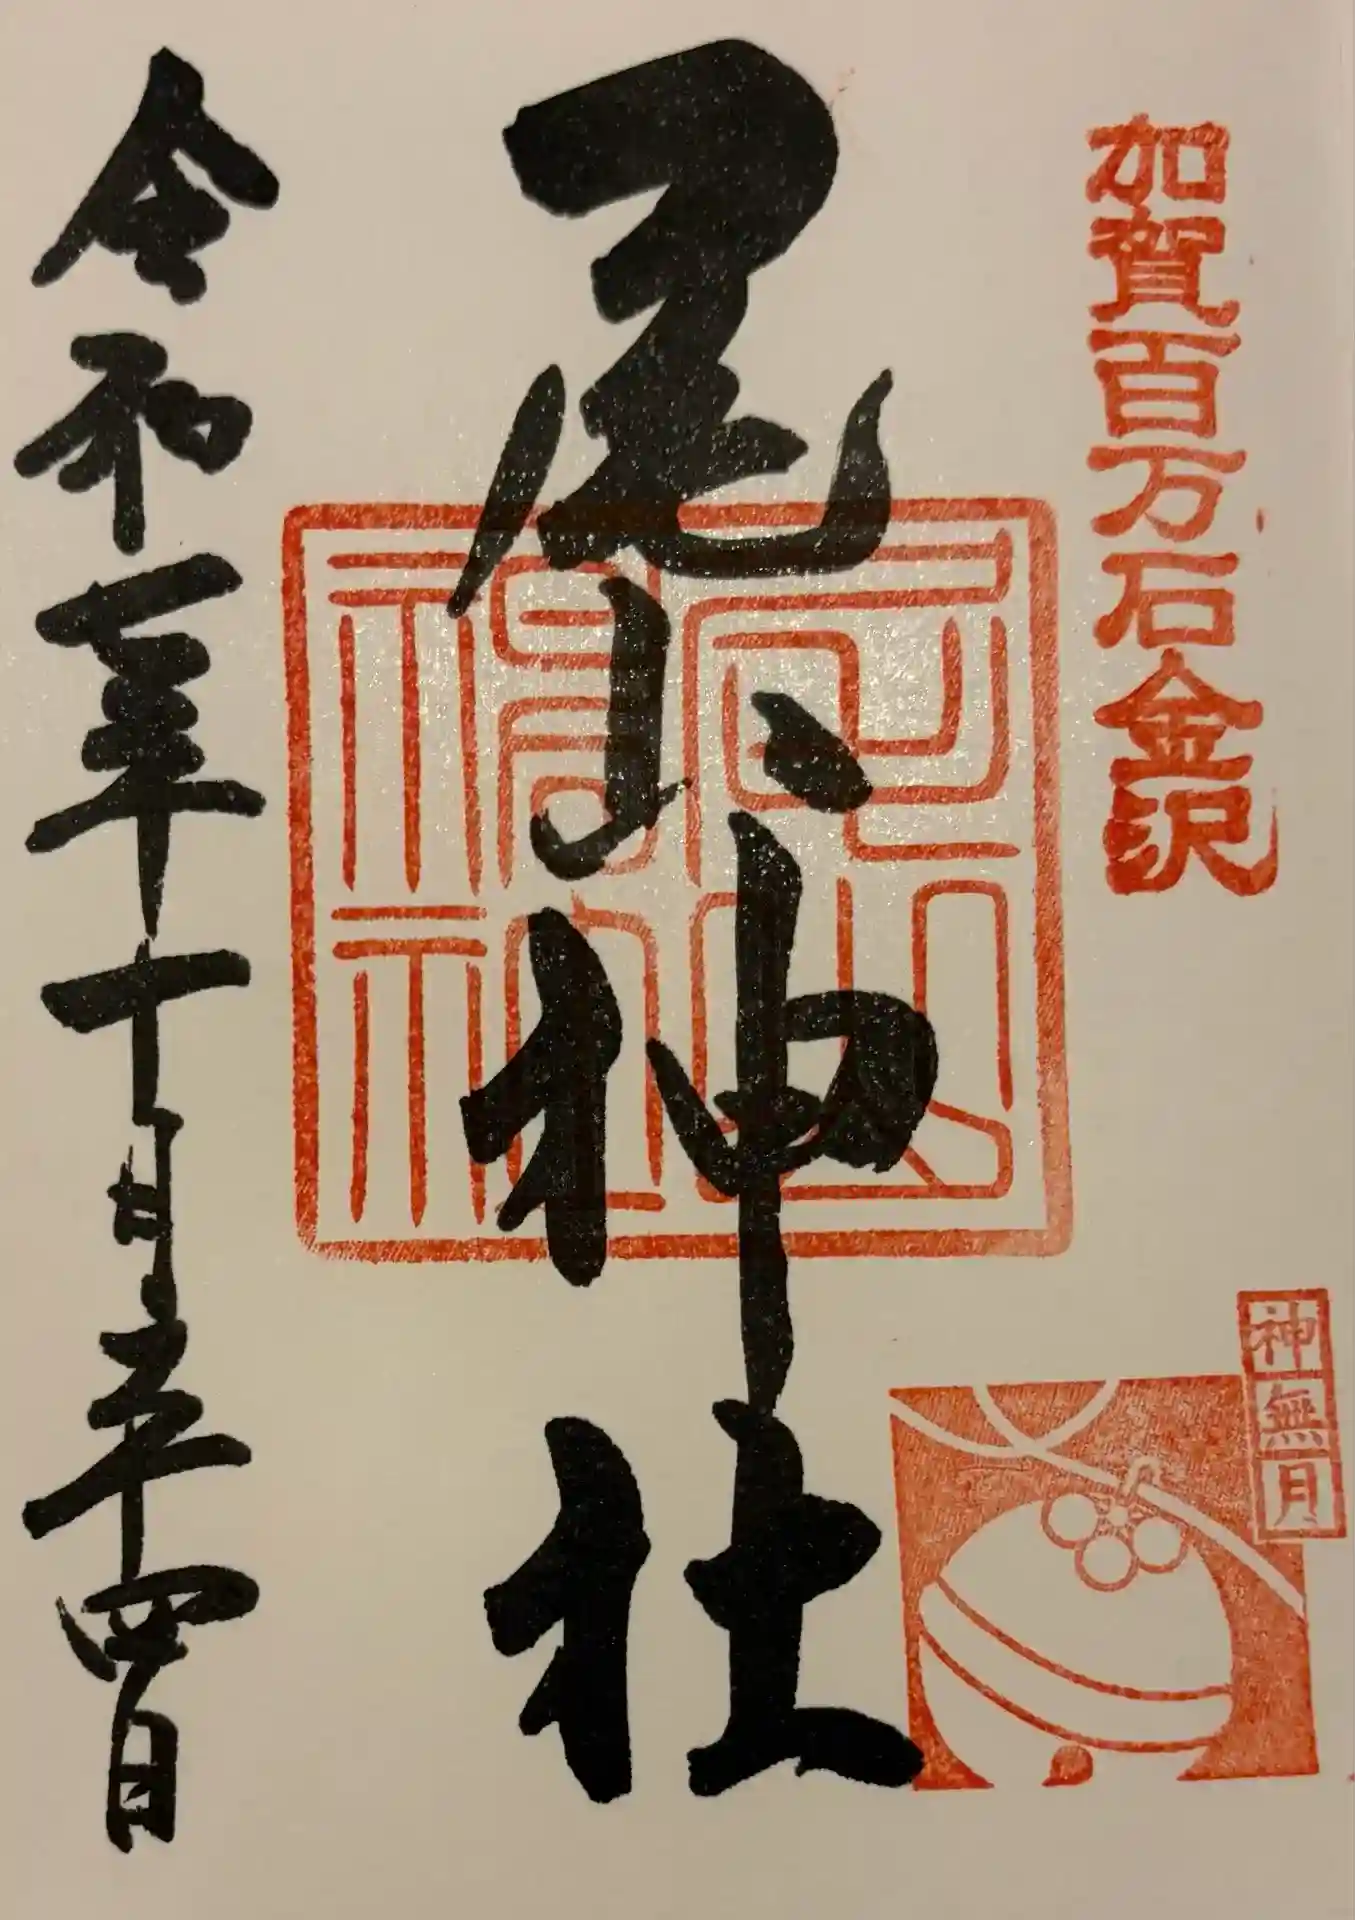 加賀百万石金沢
尾山神社
令和年十月二十四日
神無月